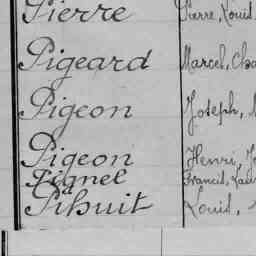 Pierre Pierre, Louis
Pigeard Marcel,
Pigeon Joseph,
Pigeon Henri,
Pignel Francis,
Pihuit Louis,